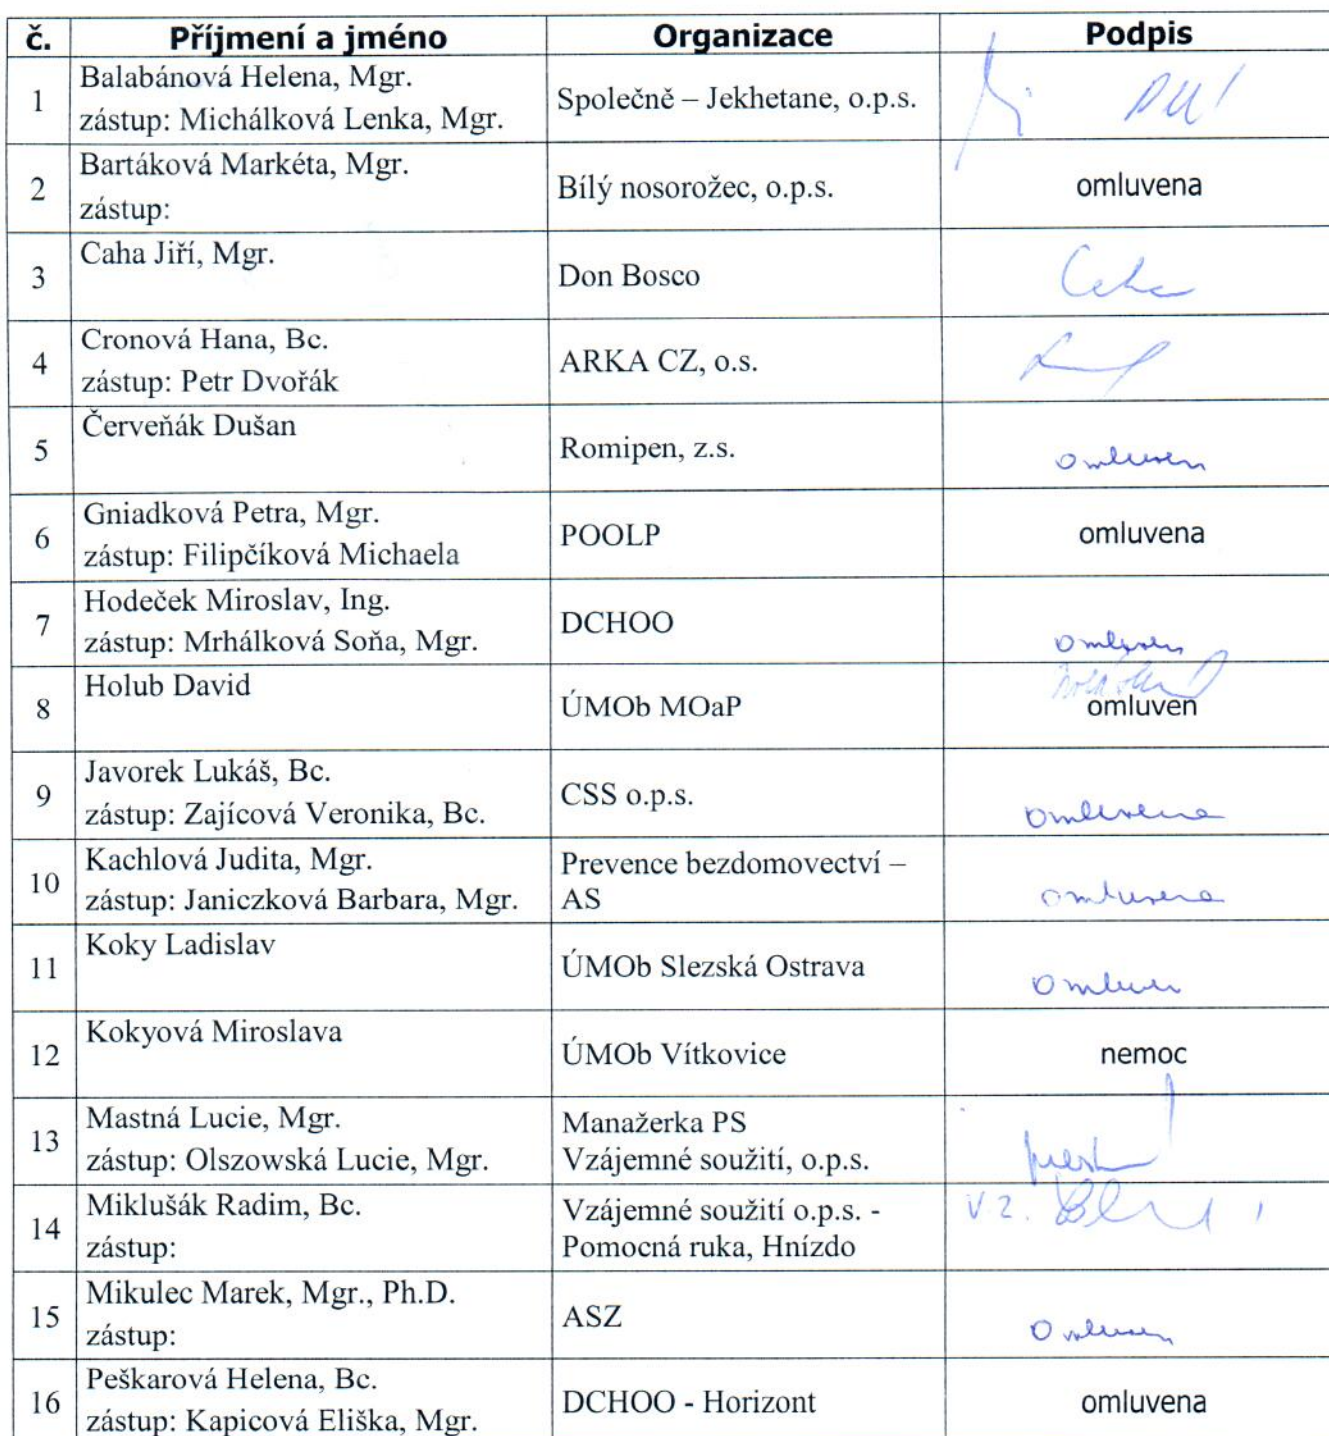 č. Příjmení a jméno Organizace Podpis
1 Balabánová Helena, Mgr.
zástup: Michálková Lenka, Mgr. Společně – Jekhetane, o.p.s.
2 Bartáková Markéta, Mgr.
zástup: Bílý nosorožec, o.p.s. omluvena
3 Caha Jiří, Mgr. Don Bosco Caha
4 Cronová Hana, Bc.
zástup: Petr Dvořák ARKA CZ, o.s.
5 Červeňák Dušan Romipen, z.s. omluven
6 Gniadková Petra, Mgr.
zástup: Filipčíková Michaela POOLP omluvena
7 Hodeček Miroslav, Ing.
zástup: Mrhálková Soňa, Mgr. DCHOO omluven
8 Holub David ÚMOb MOaP omluven
9 Javorek Lukáš, Bc.
zástup: Zajícová Veronika, Bc. CSS o.p.s. omluvena
10 Kachlová Judita, Mgr. Prevence bezdomovectví –
zástup: Janiczková Barbara, Mgr. AS omluvena
11 Koky Ladislav ÚMOb Slezská Ostrava omluven
12 Kokyová Miroslava ÚMOb Vítkovice nemoc
13 Mastná Lucie, Mgr. Manažerka PS
zástup: Olszowská Lucie, Mgr. Vzájemné soužití, o.p.s.
14 Miklušák Radim, Bc. Vzájemné soužití o.p.s. - v.z.
zástup: Pomocná ruka, Hnízdo
15 Mikulec Marek, Mgr., Ph.D.
zástup: ASZ omluven
16 Peškarová Helena, Bc.
zástup: Kapicová Eliška, Mgr. DCHOO - Horizont omluvena